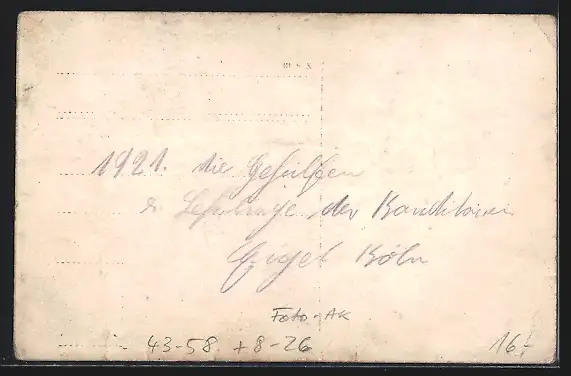 1921. die Gehülfen
& Lehrlinge der Konditorei
Köln
Foto-AK
43-58 +8-26
16,-